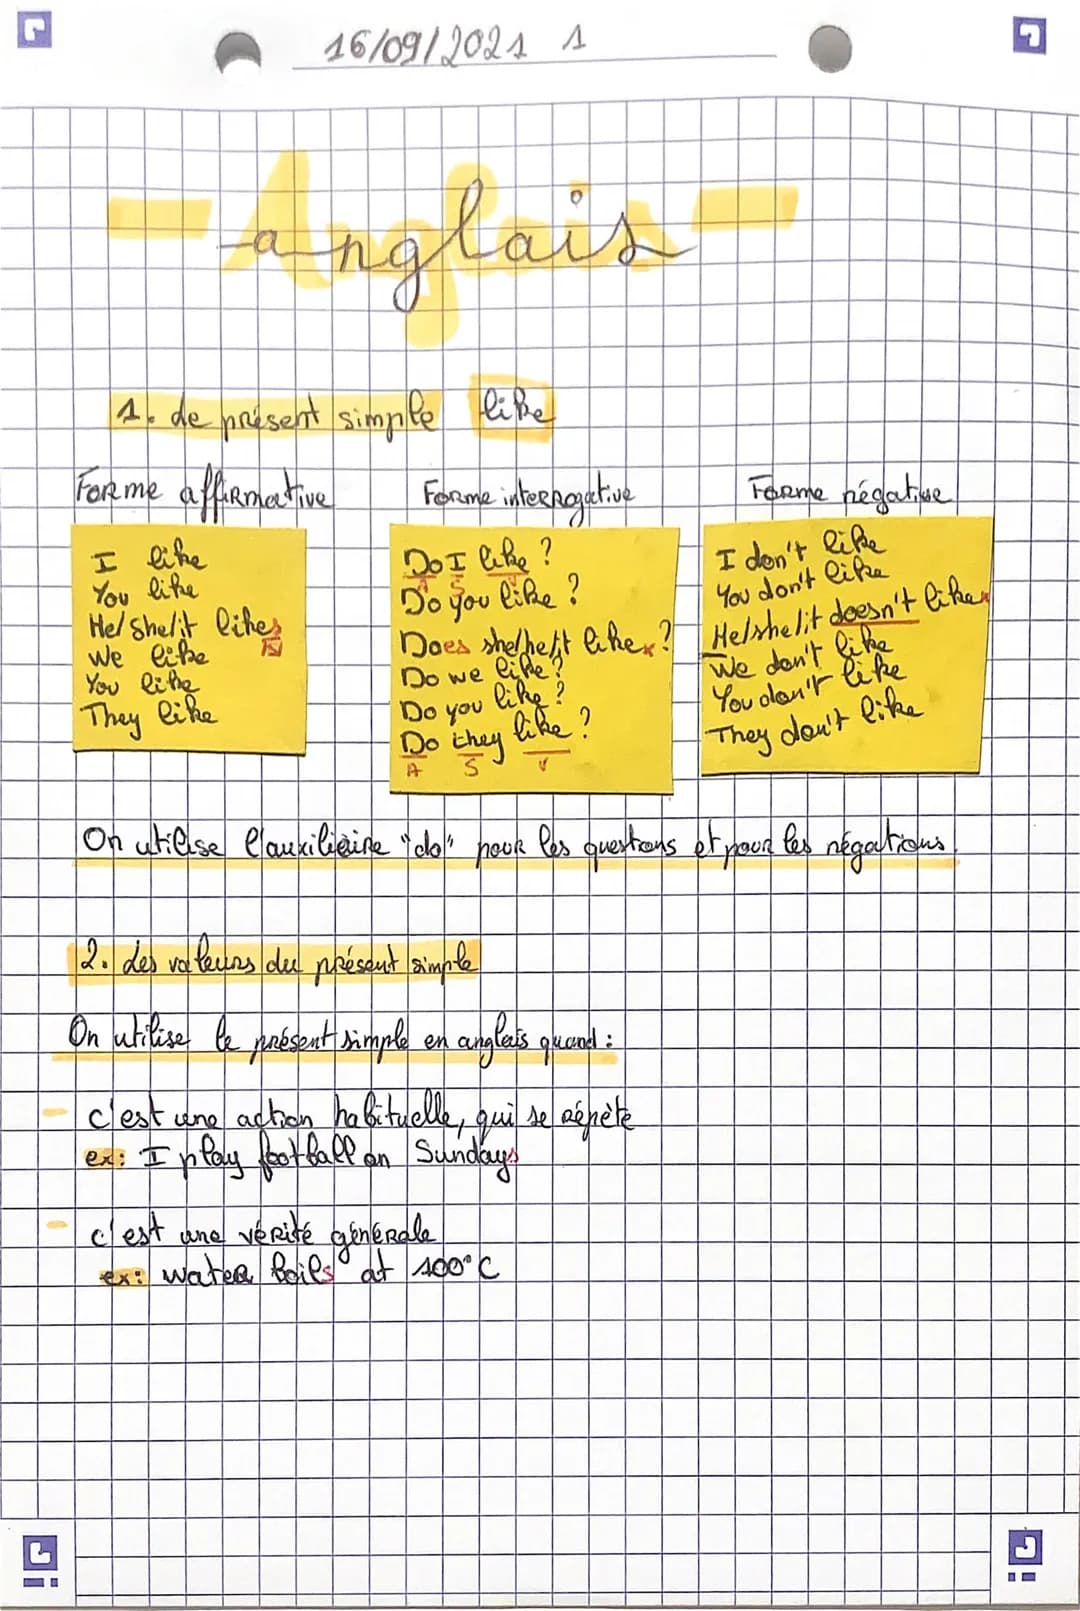 16/09/2021 1
Anglais
1. Le présent simple like
Forme affirmative
I like
You like
He/she/it likes
We like
You like
They like
Forme interrogative
Do I like ?
A S V
Do you like ?
Does she/he/it likex ?
Do we like ?
Do you like ?
Do they like ?
A S V
Forme négative
I don't like
You don't like
He/she/it doesn't likex
We don't like
You don't like
They don't like
On utilise l'auxilièire "do" pour les questions et pour les négations.
2. Les valeurs du présent simple
On utilise le présent simple en anglais quand :
- c'est une action habituelle, qui se répète
ex: I play football on Sundays
- c'est une vérité générale
ex: water boils at 100°C